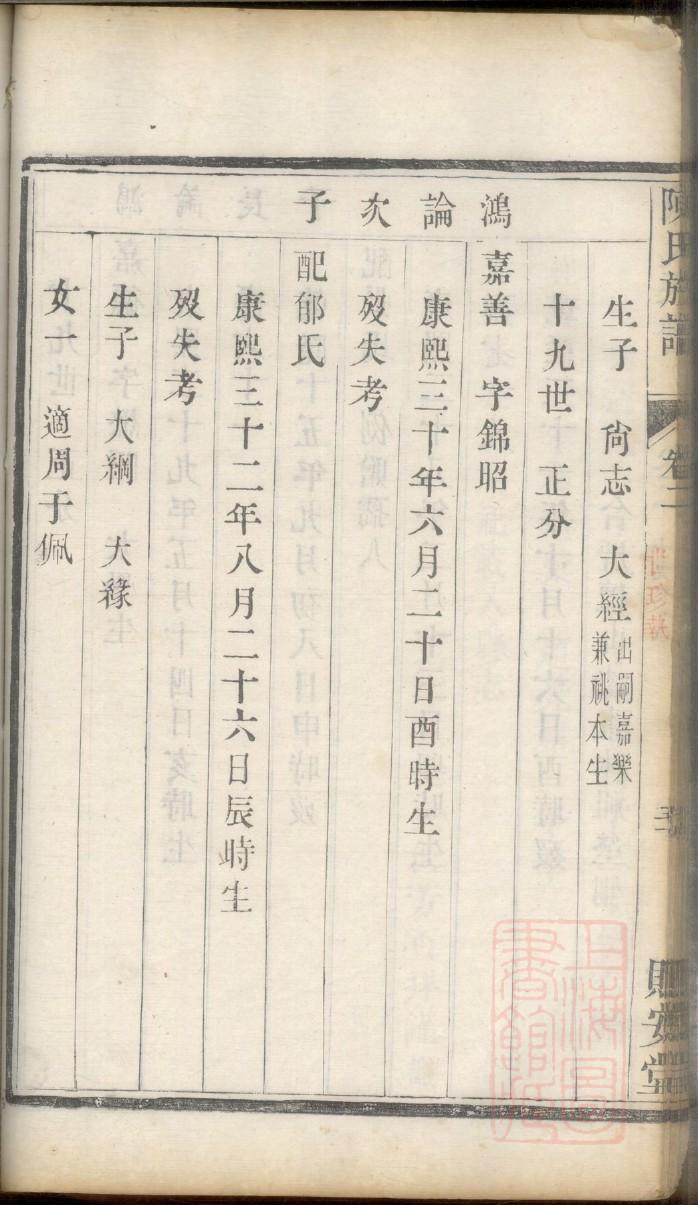 陳氏族譜
卷二
生子 尙志 大經 出嗣嘉樂兼祧本生
十九世 正分
鴻論次子
嘉善 字錦昭
康熙三十年六月二十日酉時生
歿失考
配郁氏
康熙三十二年八月二十六日辰時生
歿失考
生子 大綱 大緣
女一 適周于佩
上海圖書館藏